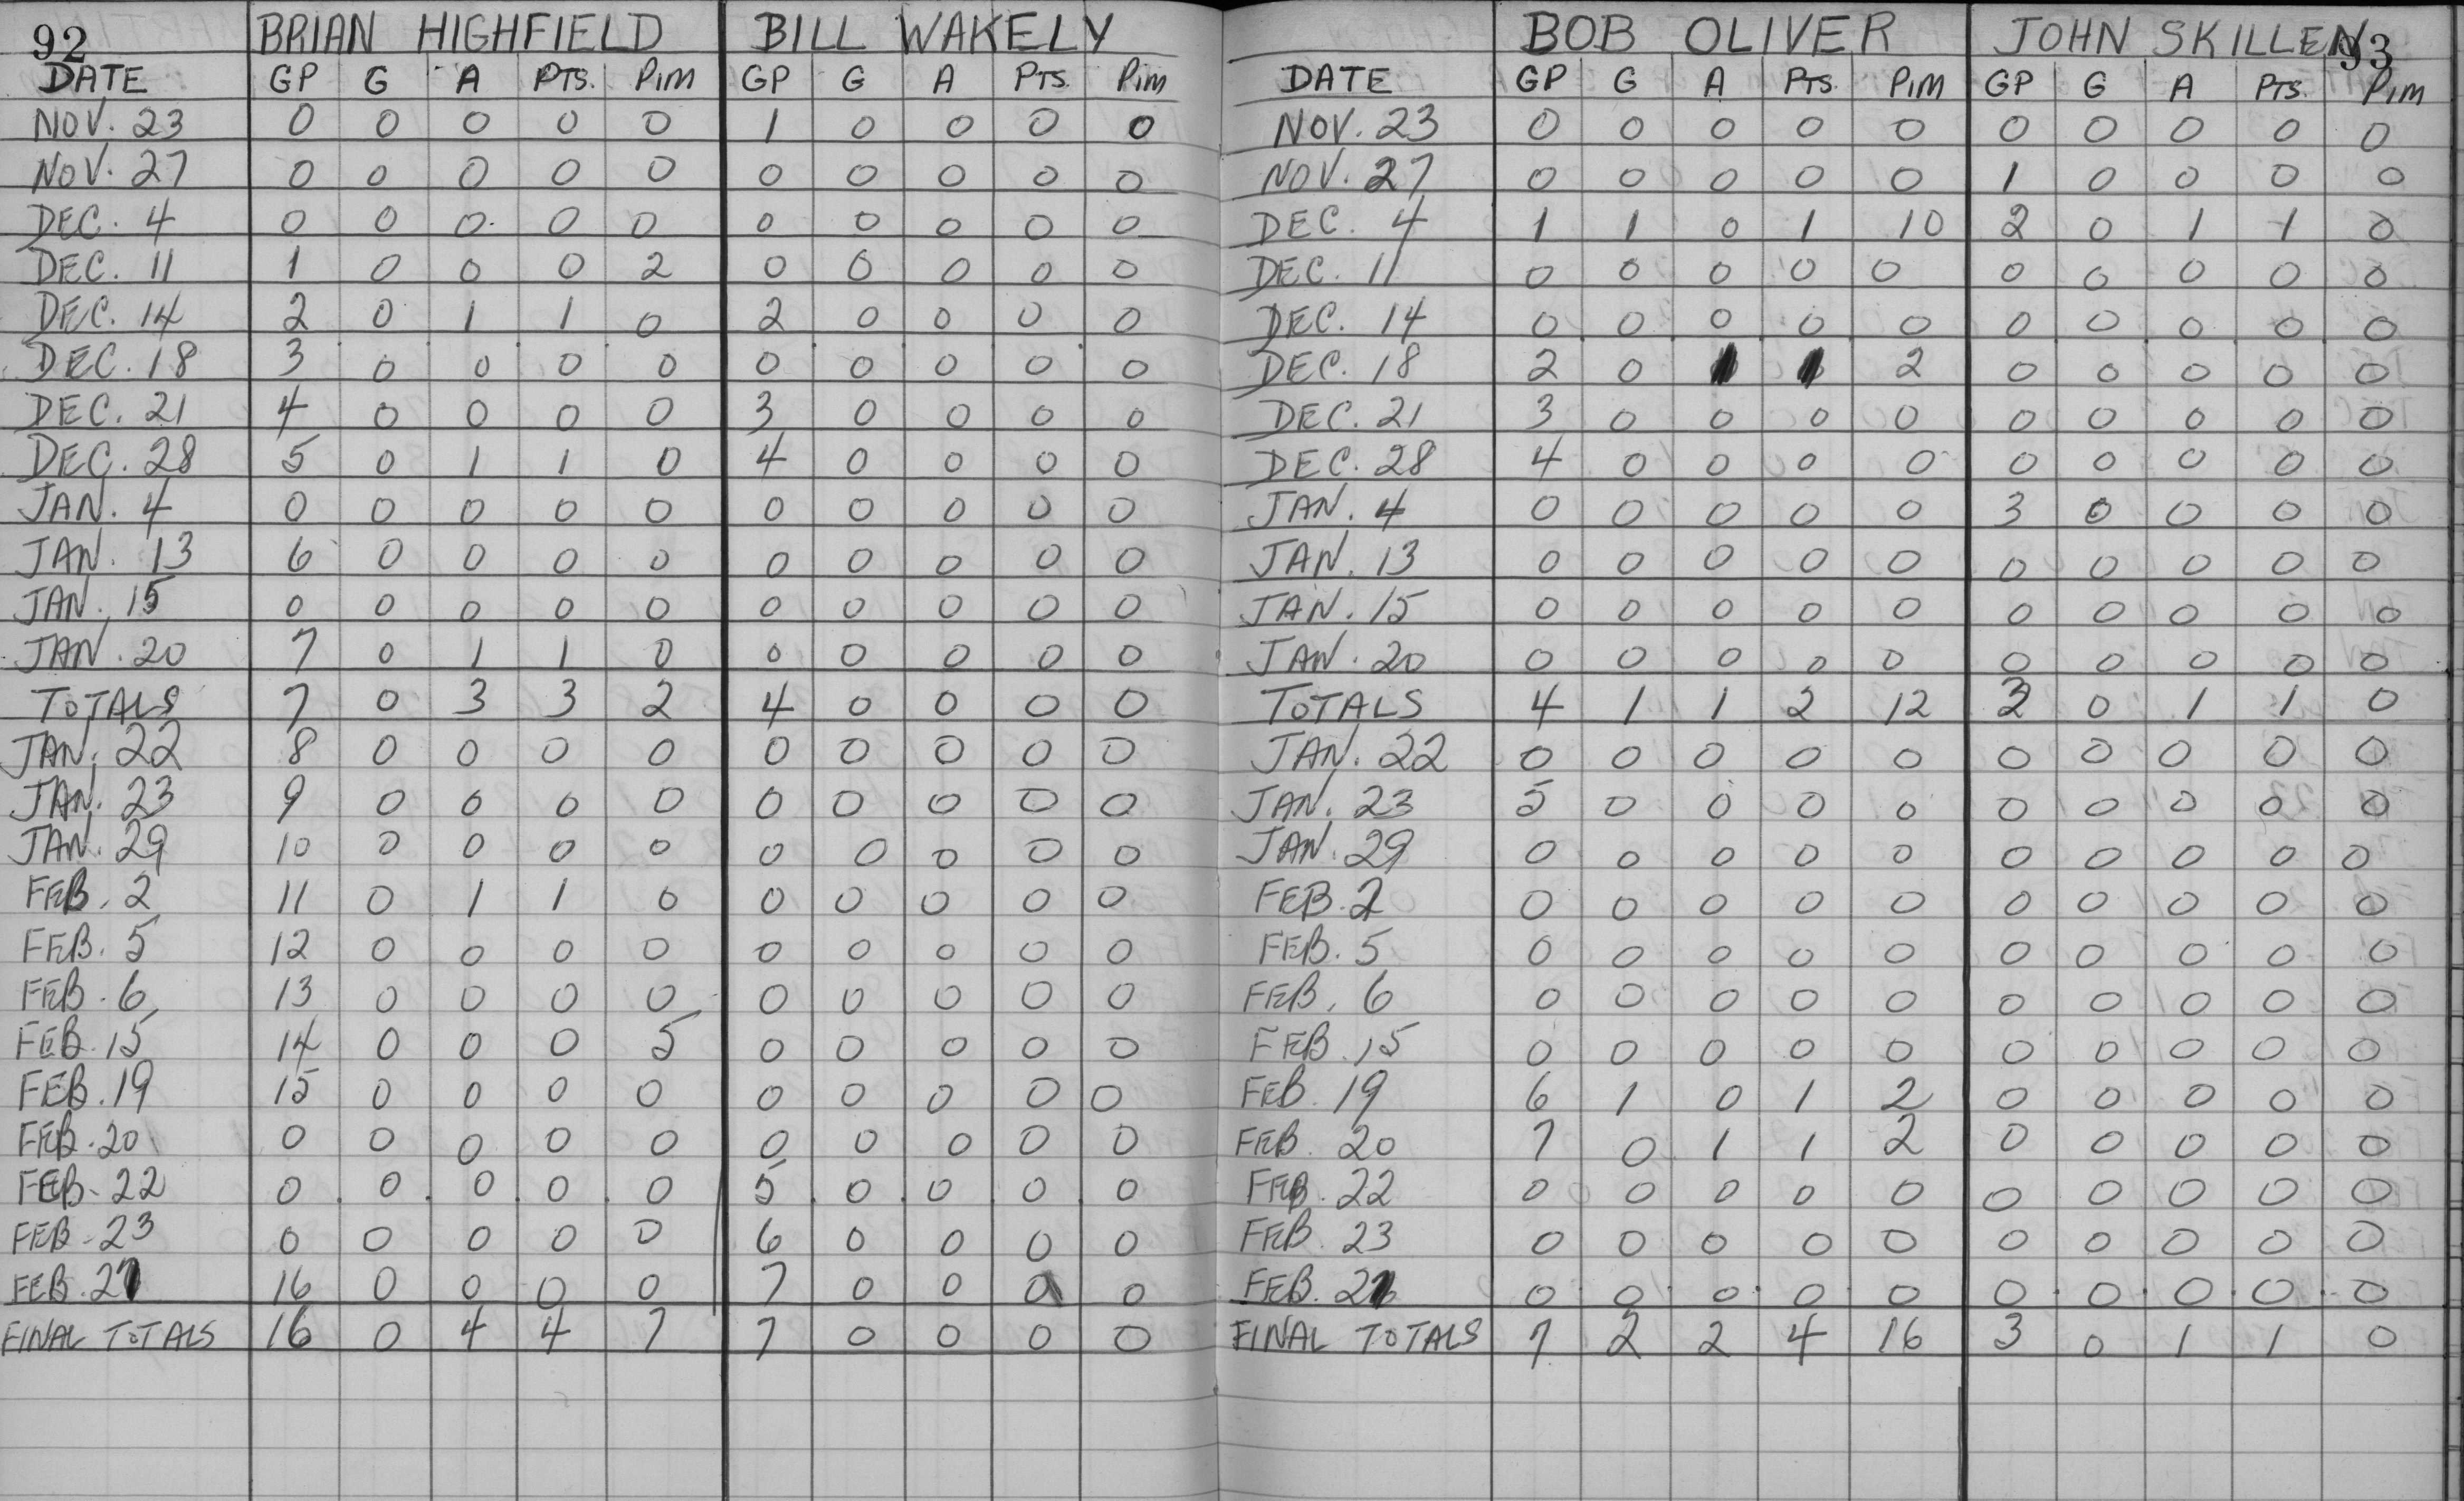 92 BRIAN HIGHFIELD BILL WAKELY
DATE GP G A PTS. PIM GP G A PTS. PIM
NOV. 23 0 0 0 0 0 1 0 0 0 0
NOV. 27 0 0 0 0 0 0 0 0 0 0
DEC. 4 0 0 0 0 0 0 0 0 0 0
DEC. 11 1 0 0 0 2 0 0 0 0 0
DEC. 14 2 0 1 1 0 2 0 0 0 0
DEC. 18 3 0 0 0 0 0 0 0 0 0
DEC. 21 4 0 0 0 0 3 0 0 0 0
DEC. 28 5 0 1 1 0 4 0 0 0 0
JAN. 4 0 0 0 0 0 0 0 0 0 0
JAN. 13 6 0 0 0 0 0 0 0 0 0
JAN. 15 0 0 0 0 0 0 0 0 0 0
JAN. 20 7 0 1 1 0 0 0 0 0 0
TOTALS 7 0 3 3 2 4 0 0 0 0
JAN. 22 8 0 0 0 0 0 0 0 0 0
JAN. 23 9 0 0 0 0 0 0 0 0 0
JAN. 29 10 0 0 0 0 0 0 0 0 0
FEB. 2 11 0 1 1 0 0 0 0 0 0
FEB. 5 12 0 0 0 0 0 0 0 0 0
FEB. 6 13 0 0 0 0 0 0 0 0 0
FEB. 15 14 0 0 0 5 0 0 0 0 0
FEB. 19 15 0 0 0 0 0 0 0 0 0
FEB. 20 0 0 0 0 0 0 0 0 0 0
FEB. 22 0 0 0 0 0 5 0 0 0 0
FEB. 23 0 0 0 0 0 6 0 0 0 0
FEB. 27 16 0 0 0 0 7 0 0 0 0
FINAL TOTALS 16 0 4 4 7 7 0 0 0 0
BOB OLIVER JOHN SKILLEN 93
DATE GP G A PTS. PIM GP G A PTS. PIM
NOV. 23 0 0 0 0 0 0 0 0 0 0
NOV. 27 0 0 0 0 0 1 0 0 0 0
DEC. 4 1 1 0 1 10 2 0 1 1 0
DEC. 11 0 0 0 0 0 0 0 0 0 0
DEC. 14 0 0 0 0 0 0 0 0 0 0
DEC. 18 2 0 1 1 2 0 0 0 0 0
DEC. 21 3 0 0 0 0 0 0 0 0 0
DEC. 28 4 0 0 0 0 0 0 0 0 0
JAN. 4 0 0 0 0 0 3 0 0 0 0
JAN. 13 0 0 0 0 0 0 0 0 0 0
JAN. 15 0 0 0 0 0 0 0 0 0 0
JAN. 20 0 0 0 0 0 0 0 0 0 0
TOTALS 4 1 1 2 12 3 0 1 1 0
JAN. 22 0 0 0 0 0 0 0 0 0 0
JAN. 23 5 0 0 0 0 0 0 0 0 0
JAN. 29 0 0 0 0 0 0 0 0 0 0
FEB. 2 0 0 0 0 0 0 0 0 0 0
FEB. 5 0 0 0 0 0 0 0 0 0 0
FEB. 6 0 0 0 0 0 0 0 0 0 0
FEB. 15 0 0 0 0 0 0 0 0 0 0
FEB. 19 6 1 0 1 2 0 0 0 0 0
FEB. 20 7 0 1 1 2 0 0 0 0 0
FEB. 22 0 0 0 0 0 0 0 0 0 0
FEB. 23 0 0 0 0 0 0 0 0 0 0
FEB. 0 0 0 0 0 0 0 0 0 0
FINAL TOTALS 7 2 2 4 16 3 0 1 1 0